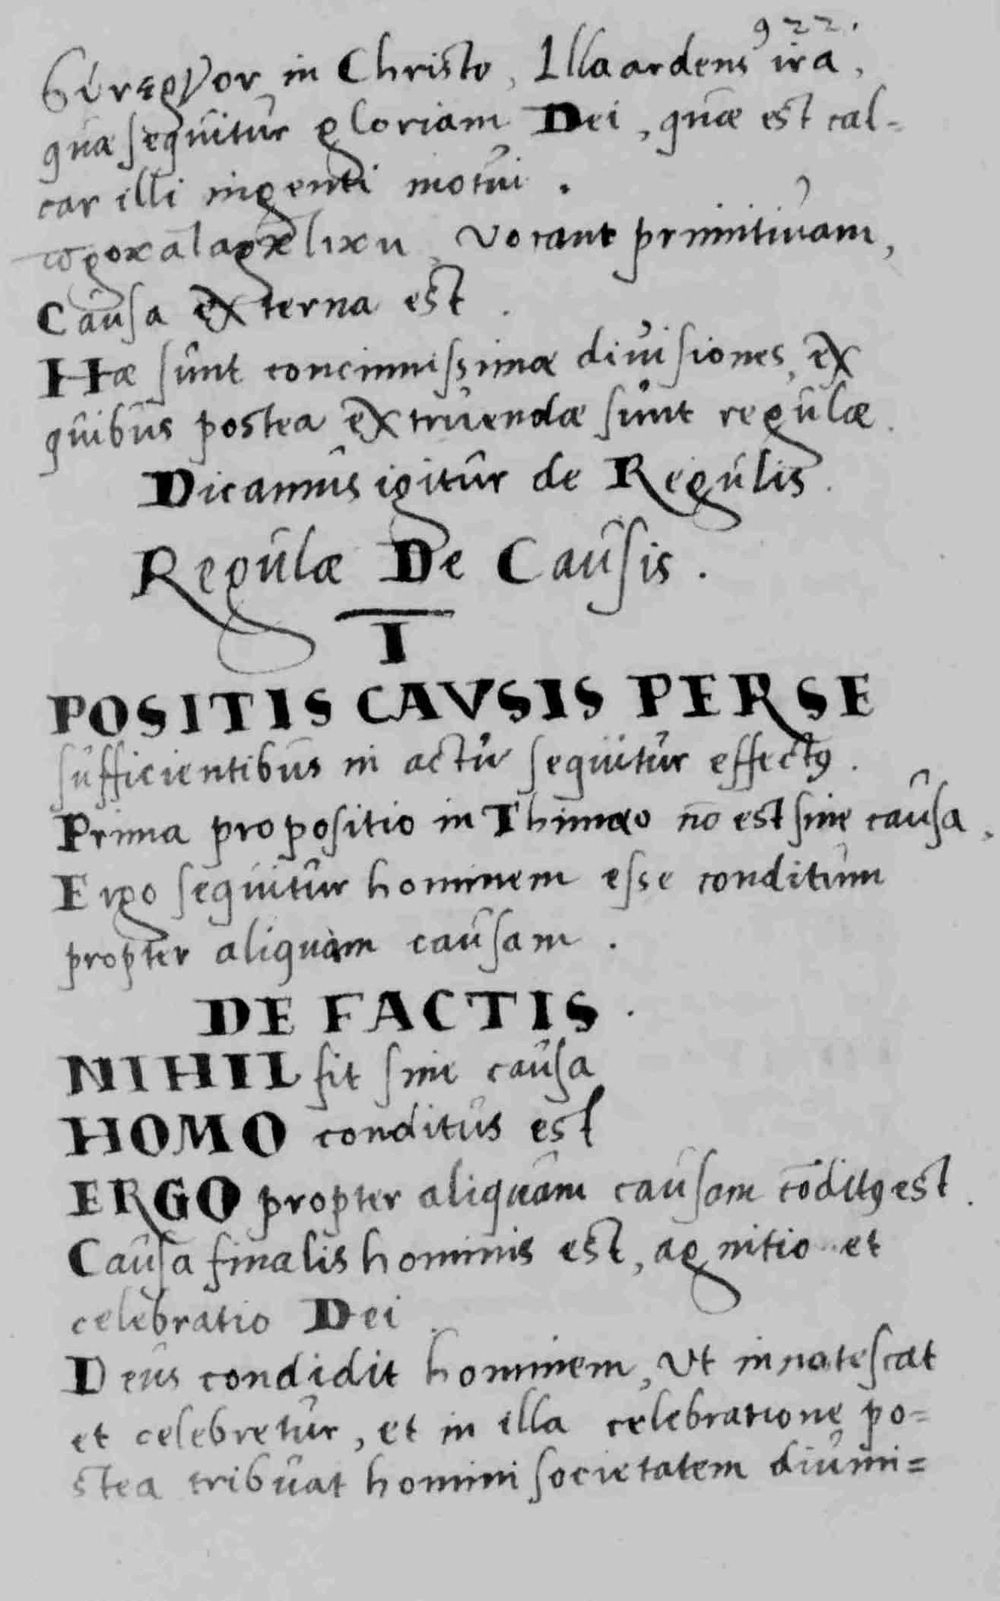 922.
in Christo, Illa ardens ira,
quæ sequitur gloriam Dei, quæ est cal-
car illi ingenti motui.
vocant primitivam,
Causa externa est.
Hæ sunt concinnissimæ divisiones, ex
quibus postea extruendæ sunt regulæ.
Dicamus igitur de Regulis.
Regulæ De Causis.
I
POSITIS CAVSIS PER SE
sufficientibus in actu sequitur effectꝰ.
Prima propositio in Thimæo nō est sine causa.
Ergo sequitur hominem esse conditum
propter aliquam causam.
DE FACTIS.
NIHIL fit sine causa
HOMO conditus est
ERGO propter aliquam causam cōditꝰ est.
Causa finalis hominis est, agnitio et
celebratio Dei.
Deus condidit hominem, Vt innotescat
et celebretur, et in illa celebratione po=
stea tribuat homini societatem divini=